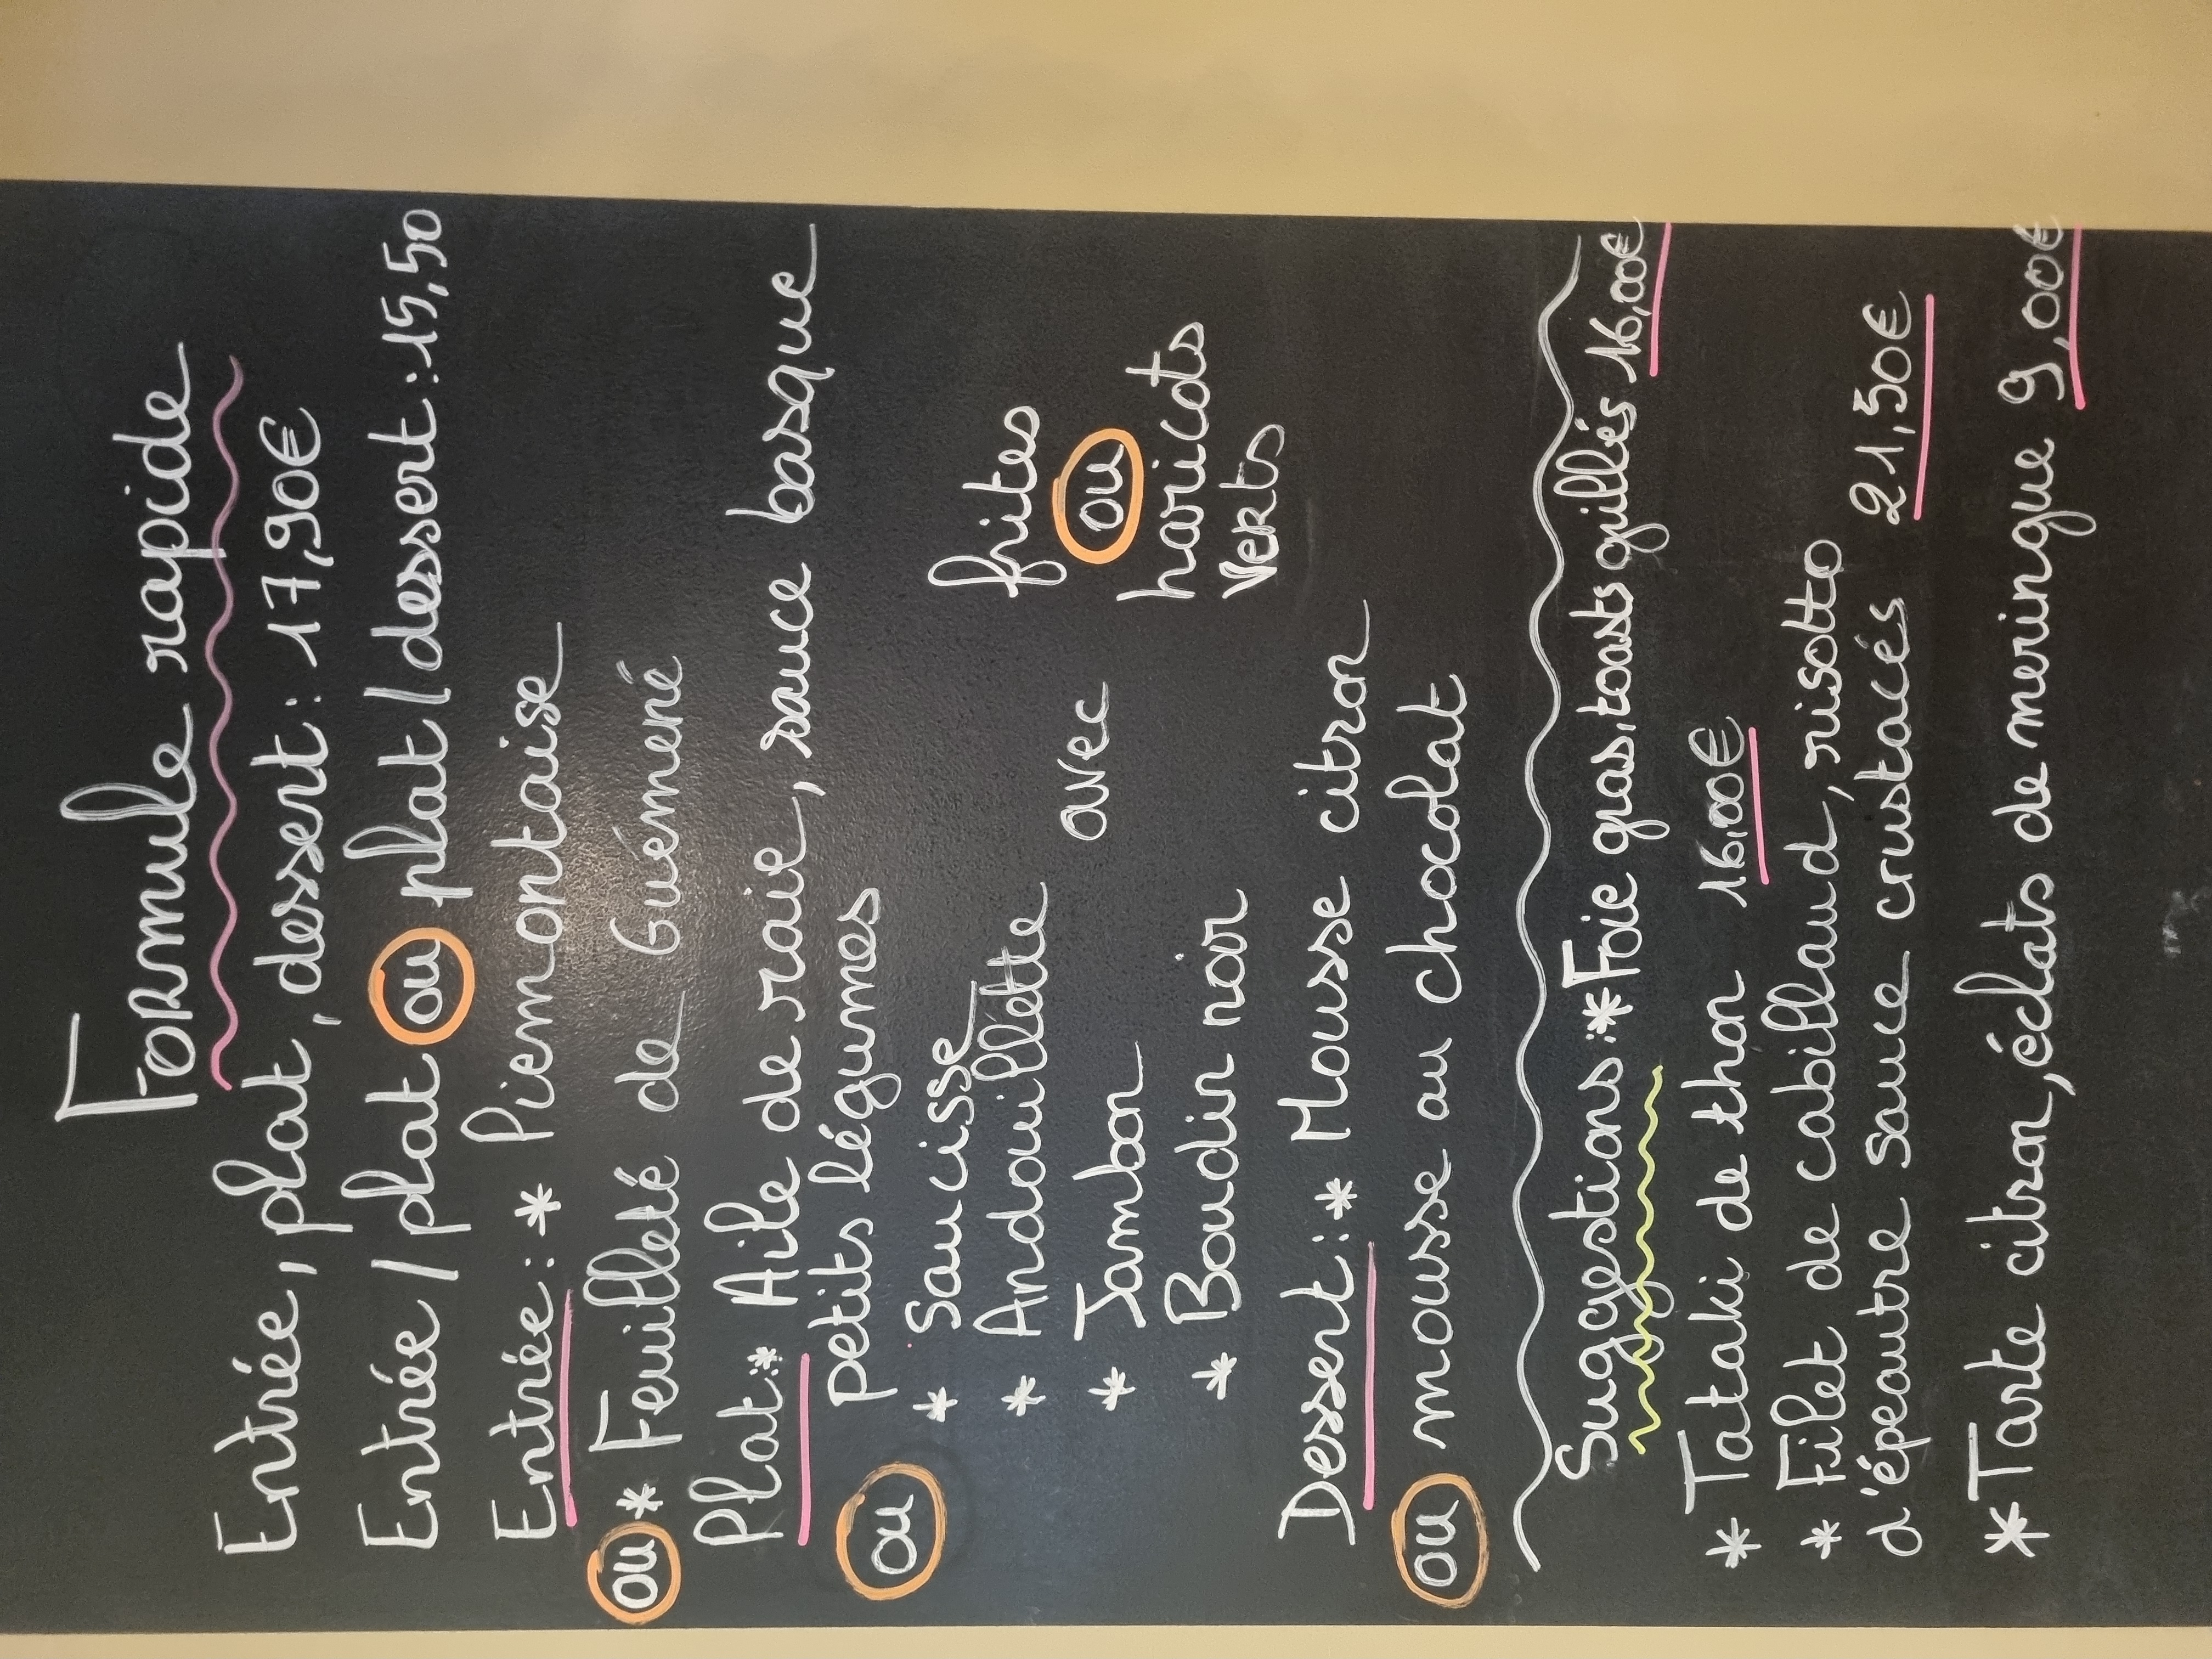 Formule rapide
Entrée, plat, dessert : 17,90€
Entrée / plat ou plat / dessert : 15,50
Entrée : * Piemontaise
ou * Feuilleté de Guémené
Plat : * Aile de raie, sauce basque
petits légumes
ou
* Saucisse
* Andouillette
* Jambon
* Boudin noir
avec
frites
ou
haricots
verts
Dessert : * Mousse citron
ou mousse au chocolat
Suggestions : * Foie gras, toasts grillés 16,00€
* Tataki de thon 16,00€
* Filet de cabillaud, risotto
d'épeautre sauce crustacés 21,50€
* Tarte citron, éclats de meringue 9,00€